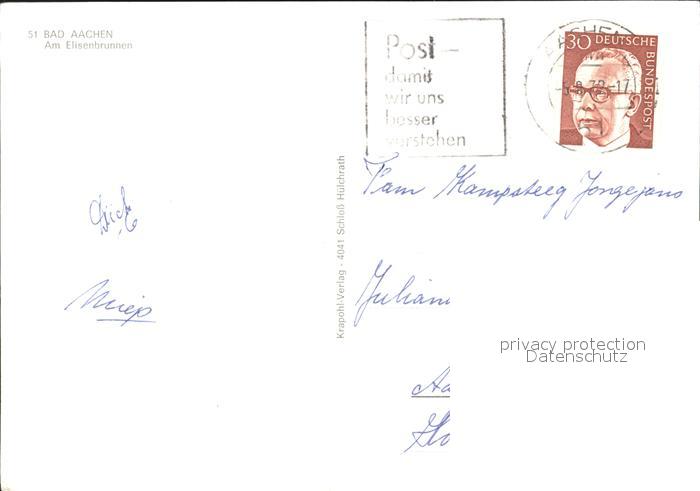 51 BAD AACHEN
Am Elisenbrunnen
Post –
damit
wir uns
besser
verstehen
AACHEN
30 DEUTSCHE BUNDESPOST
Krapohl-Verlag · 4041 Schloß Hülchrath
Fam Kampsteeg Jongejans
Julian
Aa
Ho
Dick
Miep
privacy protection
Datenschutz